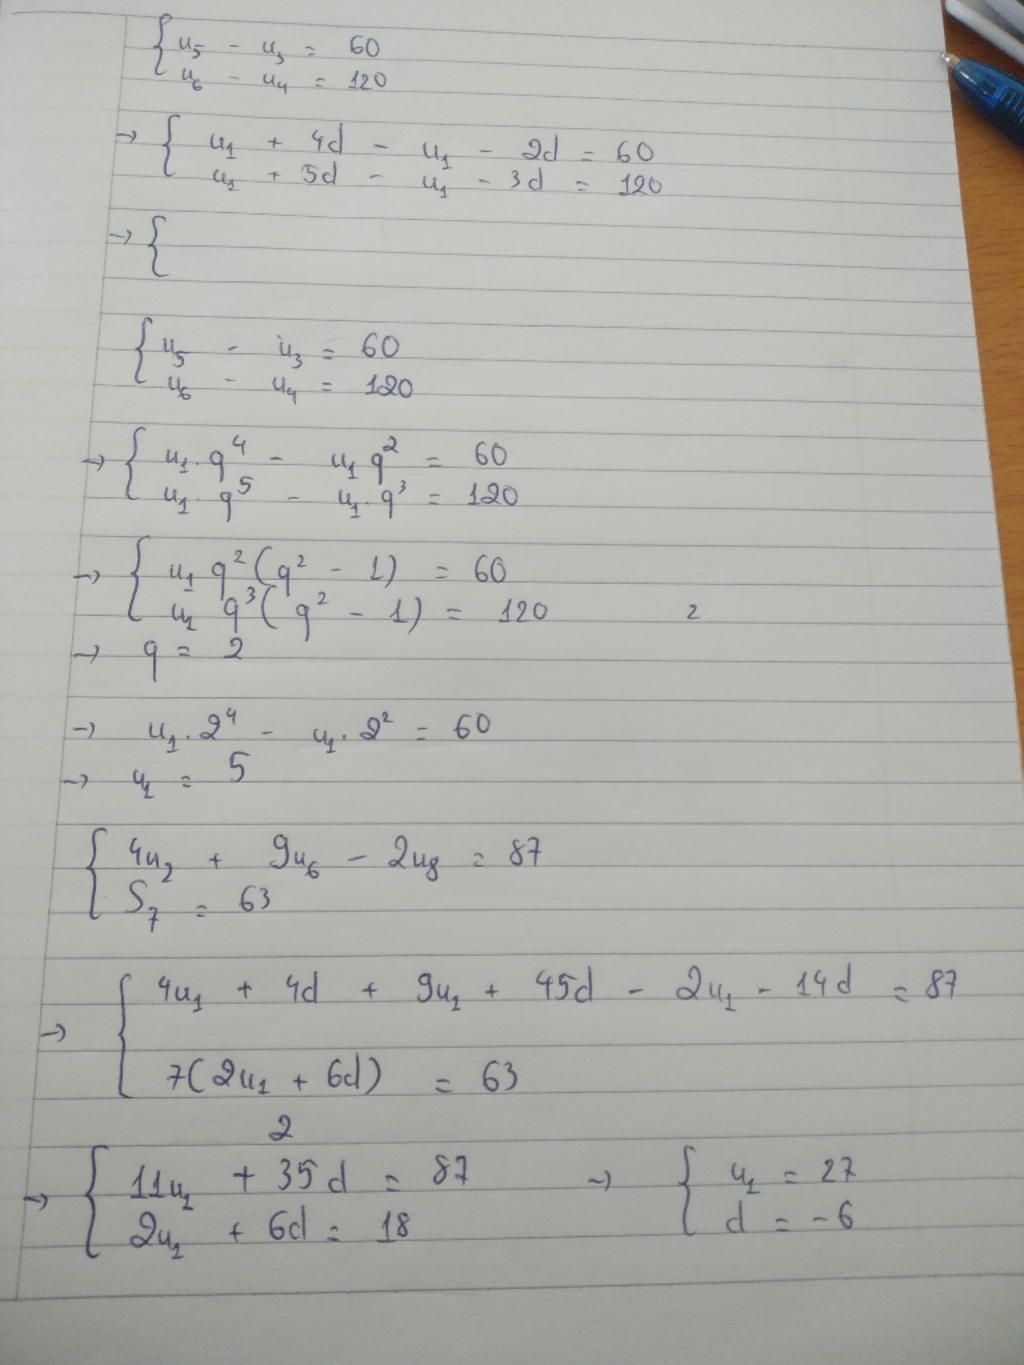 { u₅ - u₃ = 60
u₆ - u₄ = 120
→ { u₁ + 4d - u₁ - 2d = 60
u₁ + 5d - u₁ - 3d = 120
→ {
{ u₅ - u₃ = 60
u₆ - u₄ = 120
→ { u₁ . q⁴ - u₁ q² = 60
u₁ . q⁵ - u₁ . q³ = 120
→ { u₁ q² (q² - 1) = 60
u₁ q³ (q² - 1) = 120 2
→ q = 2
→ u₁ . 2⁴ - u₁ . 2² = 60
→ u₁ = 5
{ 4u₂ + 9u₆ - 2u₈ = 87
S₇ = 63
→ { 4u₁ + 4d + 9u₁ + 45d - 2u₁ - 14d = 87
7(2u₁ + 6d) = 63
2
→ { 11u₁ + 35d = 87 → { u₁ = 27
2u₁ + 6d = 18 d = -6